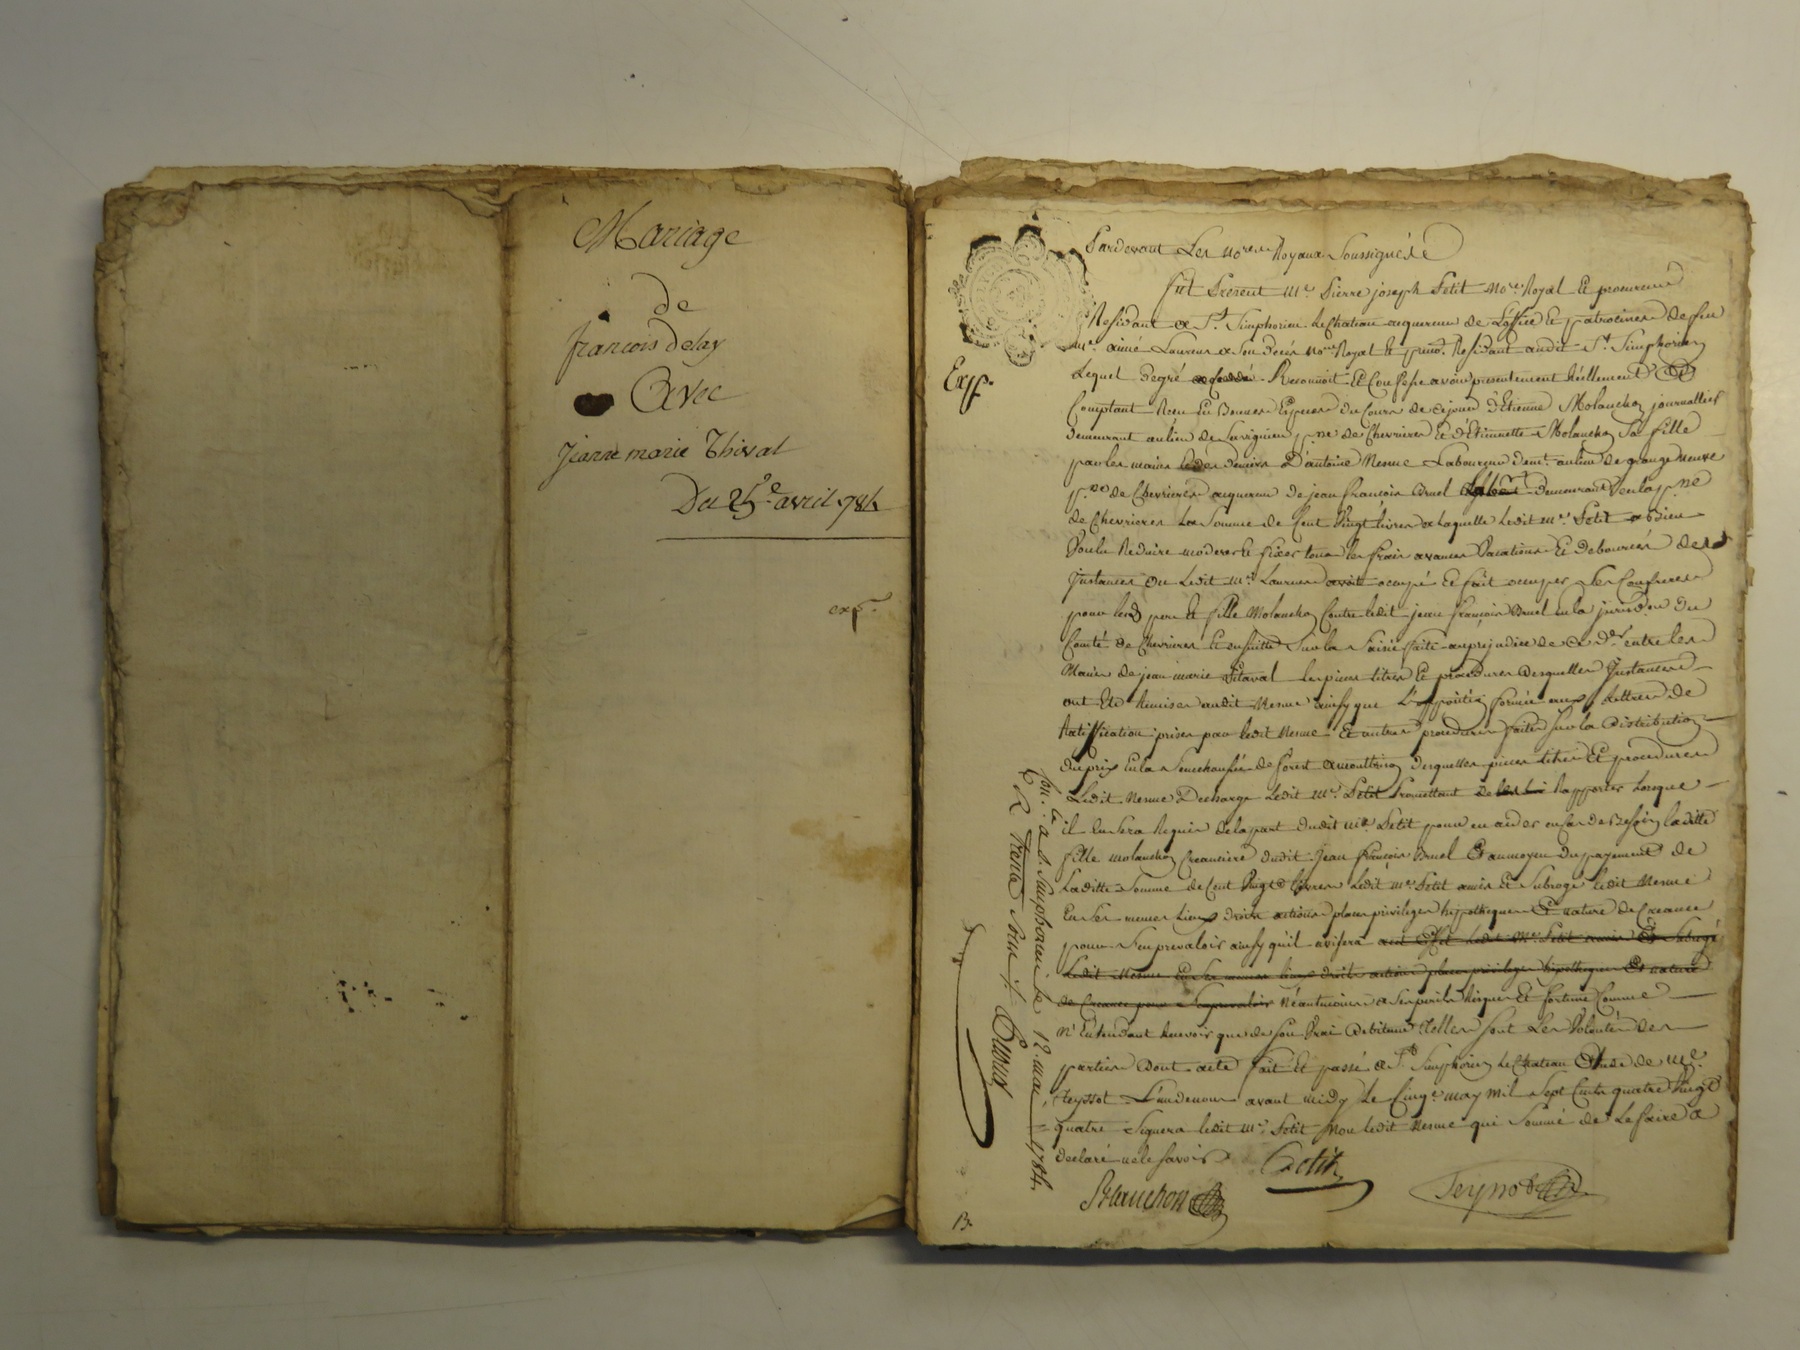 Mariage
de
françois delay
Avec
Jeanne marie Thival
Du 25e. avril 1784
exp.
Pardevant Les nores Royaux Soussignés
fut Present me. Pierre joseph Petit nore. Royal Et procureur
Residant a St. Simphorien Le Chateau acquereur de L'office Et patrocines de feu
me. aimé Laurens a Son deces nore Royal Et procr. Residant audit St. Simphorien
Exp.
Lequel de gré Reconnoit Et Confesse avoir presentement Réellement Et
Comptant Reçu En Bonnes Especes du Cours de cejour d'Etienne Molanchon journallier
demeurant au lieu de pse de Chevrieres Et d'Etiennette Molanchon Sa fille
par les mains d'antoine Nesme Laboureur demt. au lieu de grange neuve
psse de Chevrieres acquereur de jean françois Bruel demeurant En la psse
de Chevrieres La Somme de Cent Vingt livres a laquelle Ledit me. Petit a Bien
Voulu Reduire moderer Et fixer tous les frais avances Vacations Et deboursés des
Instances Ou Ledit me. Laurens avoit occupé Et fait occuper Ses Confreres
pour lesd pere Et fille Molanchon Contre ledit jean françois Bruel En la jurisdon du
Comté de Chevrieres Et ensuitte Sur la Saisie faite au prejudice de ce dr. entre les
Mains de jean marie Vitaval les pieces titres Et procedures desquelles Instances
ont Eté Remises audit Nesme ainsy que L'oppôition formée aux Lettres de
Ratiffication prises par ledit Nesme Et autres procedures faites Sur la distribution
du prix En la Senechaussée de forest a montbrison desquelles pieces titres Et procedures
Ledit Nesme decharge Ledit me. Petit Promettant de les Rapporter Lorsque
il En Sera Requis de la part dudit me Petit pour en aider en cas de Besoin laditte
fille molanchon Creanciere dudit Jean françois Bruel Et au moyen du payement de
Laditte Somme de Cent Vingt Livres Ledit me. Petit a mis Et Subrogé ledit Nesme
En Ses memes Lieux droits actions places privileges hypotheques Et nature de Creance
pour S'en prevaloir ainsy qu'il avisera Ledit me. Petit a mis Et Subrogé
Ledit Nesme En Ses memes lieux droits actions places privileges hypotheques Et nature
de Creance pour S'en prevaloir Néantmoins a Ses perils Risques Et fortune Comme
N'Entendant Recevoir que de Son Vrai debiteur Telles Sont Les Volontés des
parties dont acte fait Et passé a St Simphorien Le Chateau Etude de me.
Teyssot L'un de nous avant midy Le Cinqe. may Mil Sept Cents quatre Vingt
quatre Signera ledit me. Petit Non ledit Nesme qui Sommé de Le faire a
declaré ne le Savoir
Petit
Blanchon
Teyssot
B.
Con. lé a S. Simphorien le 12 mai 1784.
R Trente Sous